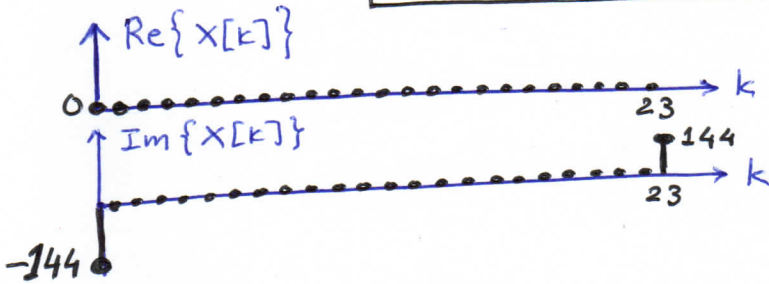 Re{X[k]}
0 k
23
Im{X[k]}
144
k
23
-144